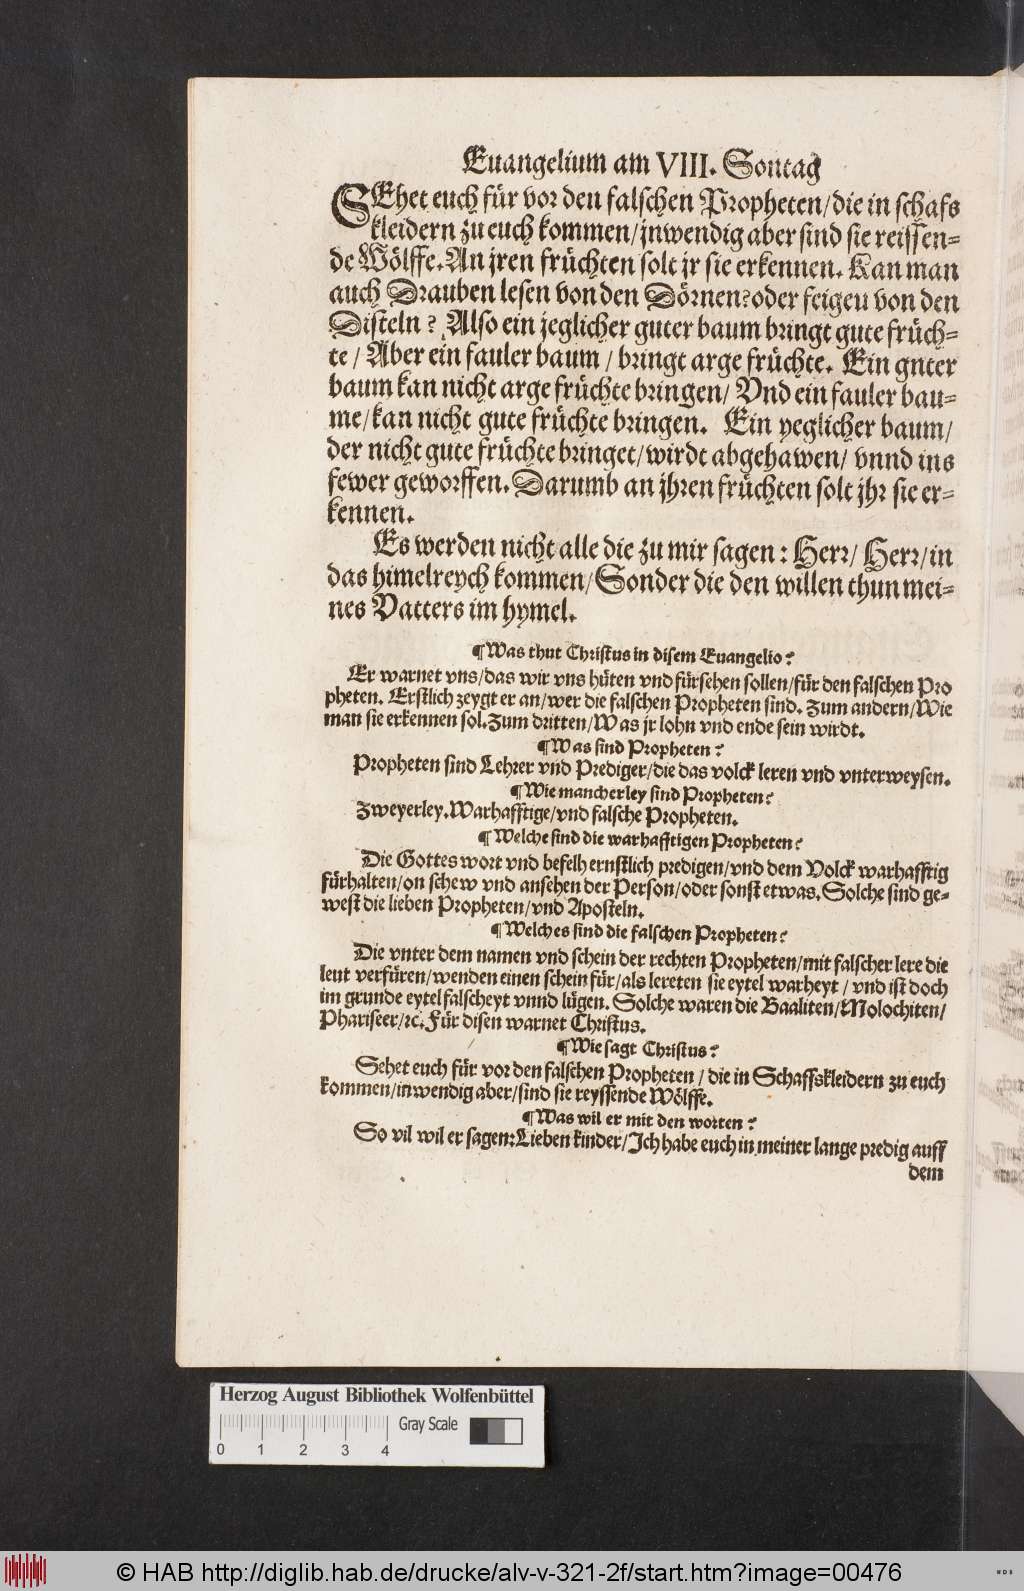 Euangelium am VIII. Sontag
SEhet euch für vor den falschen Propheten/die in schafs
kleidern zu euch kommen/jnwendig aber sind sie reissen=
de Wölffe.An jren früchten solt jr sie erkennen. Kan man
auch Drauben lesen von den Dörnen?oder feigeu von den
Disteln? Also ein jeglicher guter baum bringt gute früch=
te/Aber ein fauler baum/bringt arge früchte. Ein gnter
baum kan nicht arge früchte bringen/Vnd ein fauler bau=
me/kan nicht gute früchte bringen. Ein yeglicher baum/
der nicht gute früchte bringet/wirdt abgehawen/vnnd ins
fewer geworffen. Darumb an jhren früchten solt jhr sie er=
kennen.
Es werden nicht alle die zu mir sagen: Herr/Herr/in
das himelreych kommen/Sonder die den willen thun mei=
nes Vatters im hymel.
¶Was thut Christus in disem Euangelio?
Er warnet vns/das wir vns hüten vnd fürsehen sollen/für den falschen Pro
pheten. Erstlich zeygt er an/wer die falschen Propheten sind. Zum andern/Wie
man sie erkennen sol.Zum dritten/Was jr lohn vnd ende sein wirdt.
¶Was sind Propheten?
Propheten sind Lehrer vnd Prediger/die das volck leren vnd vnterweysen.
¶Wie mancherley sind Propheten?
Zweyerley.Warhafftige/vnd falsche Propheten.
¶Welche sind die warhafftigen Propheten?
Die Gottes wort vnd befelh ernstlich predigen/vnd dem Volck warhafftig
fürhalten/on schew vnd ansehen der Person/oder sonst etwas.Solche sind ge=
west die lieben Propheten/vnd Aposteln.
¶Welches sind die falschen Propheten?
Die vnter dem namen vnd schein der rechten Propheten/mit falscher lere die
leut verfüren/wenden einen schein für/als lereten sie eytel warheyt/vnd ist doch
im grunde eytel falscheyt vnnd lügen. Solche waren die Baaliten/Molochiten/
Phariseer/ꝛc. Für disen warnet Christus.
¶Wie sagt Christus?
Sehet euch für vor den falschen Propheten/die in Schaffskleidern zu euch
kommen/inwendig aber/sind sie reyssende Wölffe.
¶Was wil er mit den worten?
So vil wil er sagen:Lieben kinder/Ich habe euch in meiner lange predig auff
dem
Herzog August Bibliothek Wolfenbüttel
Gray Scale
0 1 2 3 4
© HAB http://diglib.hab.de/drucke/alv-v-321-2f/start.htm?image=00476